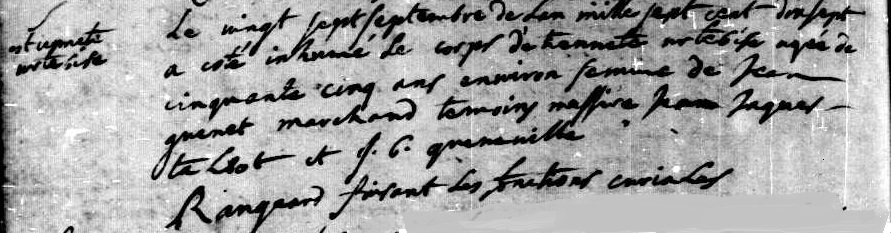 Le vingt sept septembre de Lan mille sept cent dixsept
a eté inhumé Le corps de nortebise agée de
nortebise
cinquante cinq ans environ femme de Jean
quenet marchand temoins messire Jean Jaques
talbot et f. C. queneuille
Ranquard faisant Les fonctions curiales